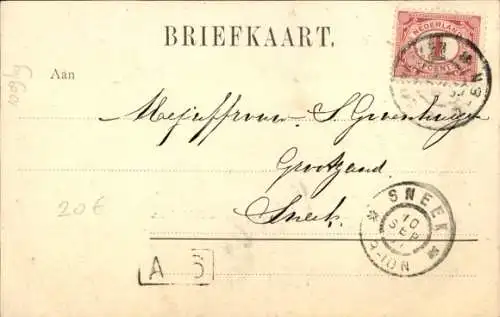 BRIEFKAART.
NEDERLAND
1
Aan
Mejuffrouw S. Groenhuizen
Grootzand
Sneek.
SNEEK
10
SEP
20 €
A B